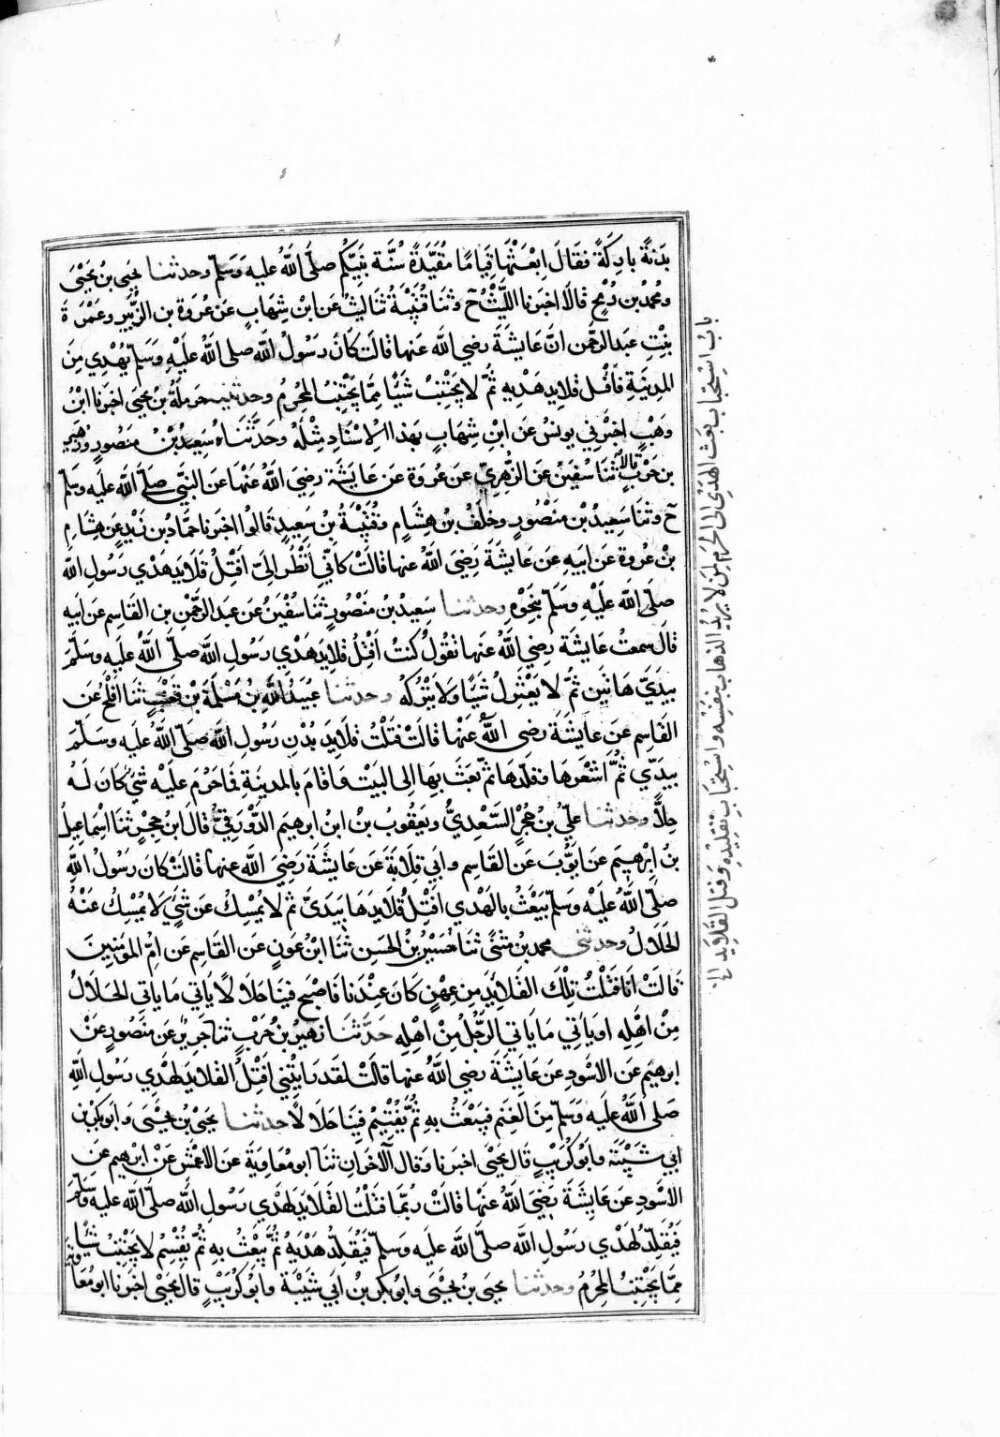 بَدَنَةً بارِكَةً فقالَ ابعَثْها قِيامًا مُقَيَّدَةً سُنَّةَ نَبِيِّكُم صلَّى اللَّهُ عليه وَسَلَّم وحدثنا يَحيَى بن يَحْيَى
ومحمد بن رُمْحٍ قالَا اخبرنا اللَّيْثُ ح وثنا قُتَيْبَةُ ثنا ليثٌ عن ابْن شِهَابٍ عَن عُروَة بن الزُّبَيرِ وعَمْرَةَ
بِنْتِ عبد الرحمن انَّ عَايِشَةَ رضي الله عنها قالَت كانَ رَسولُ اللَّه صلى اللَّه عَلَيْهِ وَسَلَّم يُهْدِي مِنَ
المدِينَةِ فَأَفْتِل قلايِدَ هَدْيِهِ ثُمَّ لا يَجْتَنِبُ شَيْئًا مِمَّا يَجْتَنِبُ المُحرِمُ وحدثنيه حَرمَلَةُ بن يحيى اخبرنا ابْنُ
وَهْبٍ اخبرَني يونسُ عن ابنِ شِهَابٍ بهذا الإِسْنادِ مِثْلَهُ وحَدَّثَنَاهُ سَعِيدُ بْنُ مَنصُورٍ وزُهَير
بن حَرْبٍ قالا ثَنَا سُفيَنُ عَن الزُّهرِيِّ عَن عُروَةَ عَن عَايشَة رَضِيَ اللَّهُ عَنْهَا عَن النَّبِيِّ صلى الله عليه وسلم
ح وثنا سَعِيدُ بن مَنصُورٍ وخَلَفُ بن هِشَامٍ وقُتَيْبَةُ بن سَعِيدٍ قَالُوا اخبرنا حَمّادُ بن زَيْدٍ عن هِشَامِ
بنْ عُروَة عَن ابيهِ عَن عَايِشَةَ رَضِيَ اللَّهُ عنها قالَتْ كَأَنِّي أَنْظُرُ إلَيَّ أفْتِلُ قَلَايِدَ هَدْيِ رَسُولِ اللَّه
صلَّى اللَّه عَلَيْهِ وَسَلَّمَ بِنَحْوِهِ وحدثنا سَعِيدُ بن مَنْصُورٍ ثنا سُفْيَنُ عن عبد الرَّحْمَنِ بن القَاسِمِ عَن ابيه
قالَ سَمِعتُ عَايِشَةَ رضِيَ اللَّهُ عنها تقُولُ كُنتُ افْتِلُ قلايدَ هَدْيِ رَسُولِ اللَّه صلَّى اللَّهُ عليه وسَلَّمَ
بِيَدَيَّ هَاتَيْنِ ثُمَّ لا يَعْتَزِلُ شَيًّا وَلَا يَتْرُكُهُ وحدثنا عبدُ اللَّهِ بن مَسْلَمَةَ بن قَعْنَبٍ ثنا افْلَحُ عَن
القَاسِمِ عَن عَايِشَةَ رضي اللَّهُ عَنْهَا قالَتْ فَتَلْتُ قلَايِدَ بُدْنِ رَسولِ اللَّه صلى اللَّهُ عليه وسلَّمَ
بِيَدَيَّ ثُمَّ اشْعَرَهَا وقلَّدهَا ثمَّ بَعَثَ بِها الى البَيْتِ وَاقامَ بالمدِينَةِ فَمَا حَرُمَ عَلَيْهِ شَيٌ كَانَ لَهُ
حِلًّا وحدثنا عليُّ بن حُجْرٍ السَّعدِيُّ ويَعقُوبُ بن ابراهيم الدَّورَقِيُّ قالَ ابنُ حُجرٍ ثنا اسْمَاعِيلُ
بن إبرهِيمَ عَن أَيُّوبَ عَن القَاسِمِ وابي قِلَابَةَ عَن عَايِشَةَ رَضِيَ اللَّه عنها قالَت كَانَ رَسُولُ اللَّهِ
صلَّى اللَّهُ عَلَيْهِ وَسَلَّم يَبعَثُ بالهَدْيِ افتِلُ قلايدَهَا بيَدَيَّ ثم لا يُمسِكُ عَن شَيٍ لا يُمْسِكُ عَنْهُ
الحَلَالُ وحدثني محمد بن مثنًى ثنا حُسَينُ بن الحَسَنِ ثنا ابْنُ عَونٍ عَن القَاسِمِ عَن امِّ المؤمِنِينَ
قالَتْ انا فتَلْتُ تِلْكَ القَلايِدَ مِن عِهْنٍ كَانَ عِنْدَنَا فَاصبَحَ فِينَا حَلَالًا يَأتِي مَا يَأتِي الحَلَالُ
مِنْ اهْلِهِ او يَأتي مَا يَاتِي الرَّجُلُ مِنْ اهْلِهِ حَدَّثَنَا زُهَيرُ بن حَرْبٍ ثنا جَرِيرٌ عَن مَنصُورٍ عَنْ
ابرهيمَ عَن الاسْوَدِ عَن عَايِشَةَ رضي اللَّهُ عنها قالَتْ لَقَد رَايتُني افْتِلُ القلايدَ لهَدْيِ رَسُولِ اللَّهِ
صَلَى اللَّهُ عليه وَسَلَّم مِنَ الغَنَمِ فيَبْعَثُ بِهِ ثُمَّ يُقِيمُ فِينَا حَلَالًا حدثنا يَحيَى بن يَحيَى وابو بَكرِ بن
ابي شَيْبَةَ وابُو كُرَيْبٍ قالَ يَحْيَى اخبرنا وقالَ الآخَرَانِ ثنا ابو مُعَاوِيَةَ عَن الاعْمَشِ عَنْ ابرهيم عَن
الاسْوَدِ عَن عَايِشَةَ رَضِيَ اللَّهُ عَنْهَا قالَتْ رُبَّمَا فتَلْتُ القَلَايِدَ لِهَدْيِ رَسُولِ اللَّه صلَّى اللَّه عليه وسلَّم
فَيُقَلِّدُ هَدْيَ رَسُولِ اللَّه صلَّى اللَّه عليه وَسلَّمَ فيُقَلِّدُ هَدْيَهُ ثُمَّ يَبْعَثُ بِهِ ثُمَّ يُقِيمُ لا يَجْتَنِبُ شَيًّا
مِمَّا يَجْتَنِبُ المحْرِمُ وحدثنا يحيَى بن يَحْيَى وابو بكر بن ابي شَيْبَة وابو كُرَيْبٍ قالَ يَحْيَى اخبرنا ابو مُعَا
بابُ اسْتِحْبابِ بَعْثِ الهَدْيِ الى الحَرَمِ لِمَن لا يُريدُ الذهابَ بنفسِه واستِحْبَابِ تَقليدِهِ وفتل القَلَايِدِ